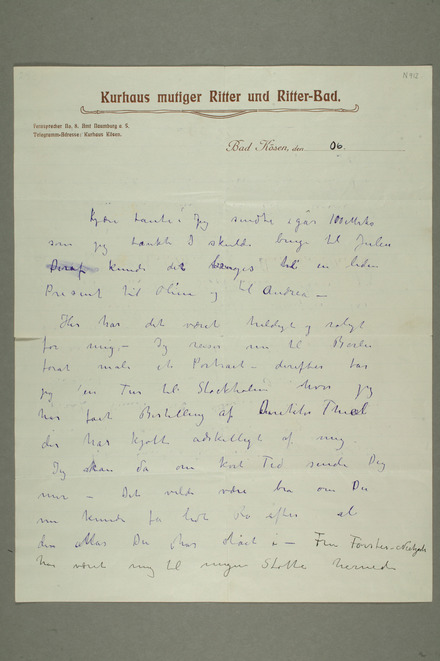 N 912
Kurhaus mutiger Ritter und Ritter-Bad.
Fernsprecher No. 6. Amt Naumburg a. S.
Telegramm-Adresse: Kurhaus Kösen.
Bad Kösen, den 06.
Kjære Tante! Jeg sendte igår 100 Mark
som jeg tænkte I skulde bruge til Julen
Deraf kunde det bruges til en liden
Present til Oline og til Andrea –
Her har det været heldigt og roligt
for mig. – Jeg reiser nu til Berlin
forat male et Portræt – derefter tar
jeg en Tur til Stockholm hvor jeg
har faat Bestilling af Thiel
der har kjøbt adskilligt af mig.
Jeg skal da om kort Tid sende Dig
mer – Det vilde være bra om Du
nu kunde få lidt Ro efter al
den Du har stået i – Fru Förster-Nietzsche
har været mig til megen Støtte hernede